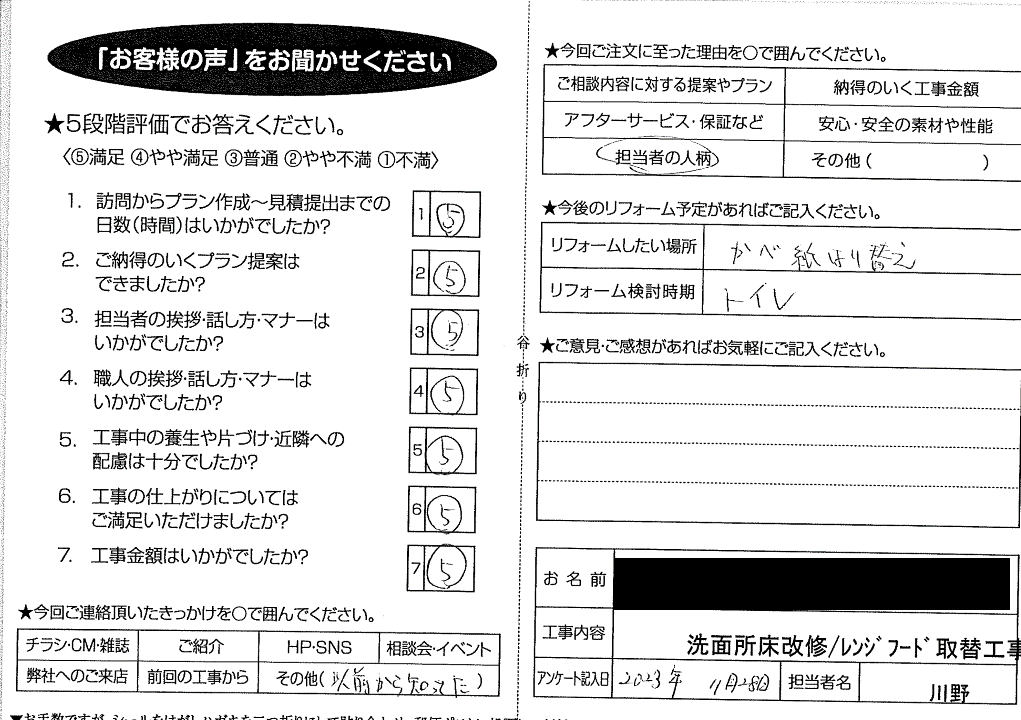 「お客様の声」をお聞かせください
★5段階評価でお答えください。
〈⑤満足 ④やや満足 ③普通 ②やや不満 ①不満〉
1. 訪問からプラン作成～見積提出までの
日数(時間)はいかがでしたか?
1 ⑤
2. ご納得のいくプラン提案は
できましたか?
2 ⑤
3. 担当者の挨拶・話し方・マナーは
いかがでしたか?
3 ⑤
4. 職人の挨拶・話し方・マナーは
いかがでしたか?
4 ⑤
5. 工事中の養生や片づけ・近隣への
配慮は十分でしたか?
5 ⑤
6. 工事の仕上がりについては
ご満足いただけましたか?
6 ⑤
7. 工事金額はいかがでしたか?
7 ⑤
★今回ご連絡頂いたきっかけを○で囲んでください。
チラシ・CM・雑誌 ご紹介 HP・SNS 相談会・イベント
弊社へのご来店 前回の工事から その他(以前から知ってた)
谷折り
★今回ご注文に至った理由を○で囲んでください。
ご相談内容に対する提案やプラン 納得のいく工事金額
アフターサービス・保証など 安心・安全の素材や性能
担当者の人柄 その他( )
★今後のリフォーム予定があればご記入ください。
リフォームしたい場所 かべ紙はり替え
リフォーム検討時期 トイレ
★ご意見・ご感想があればお気軽にご記入ください。
お名前
工事内容 洗面所床改修/レンジフード取替工事
アンケート記入日 2023年 11月28日 担当者名 川野